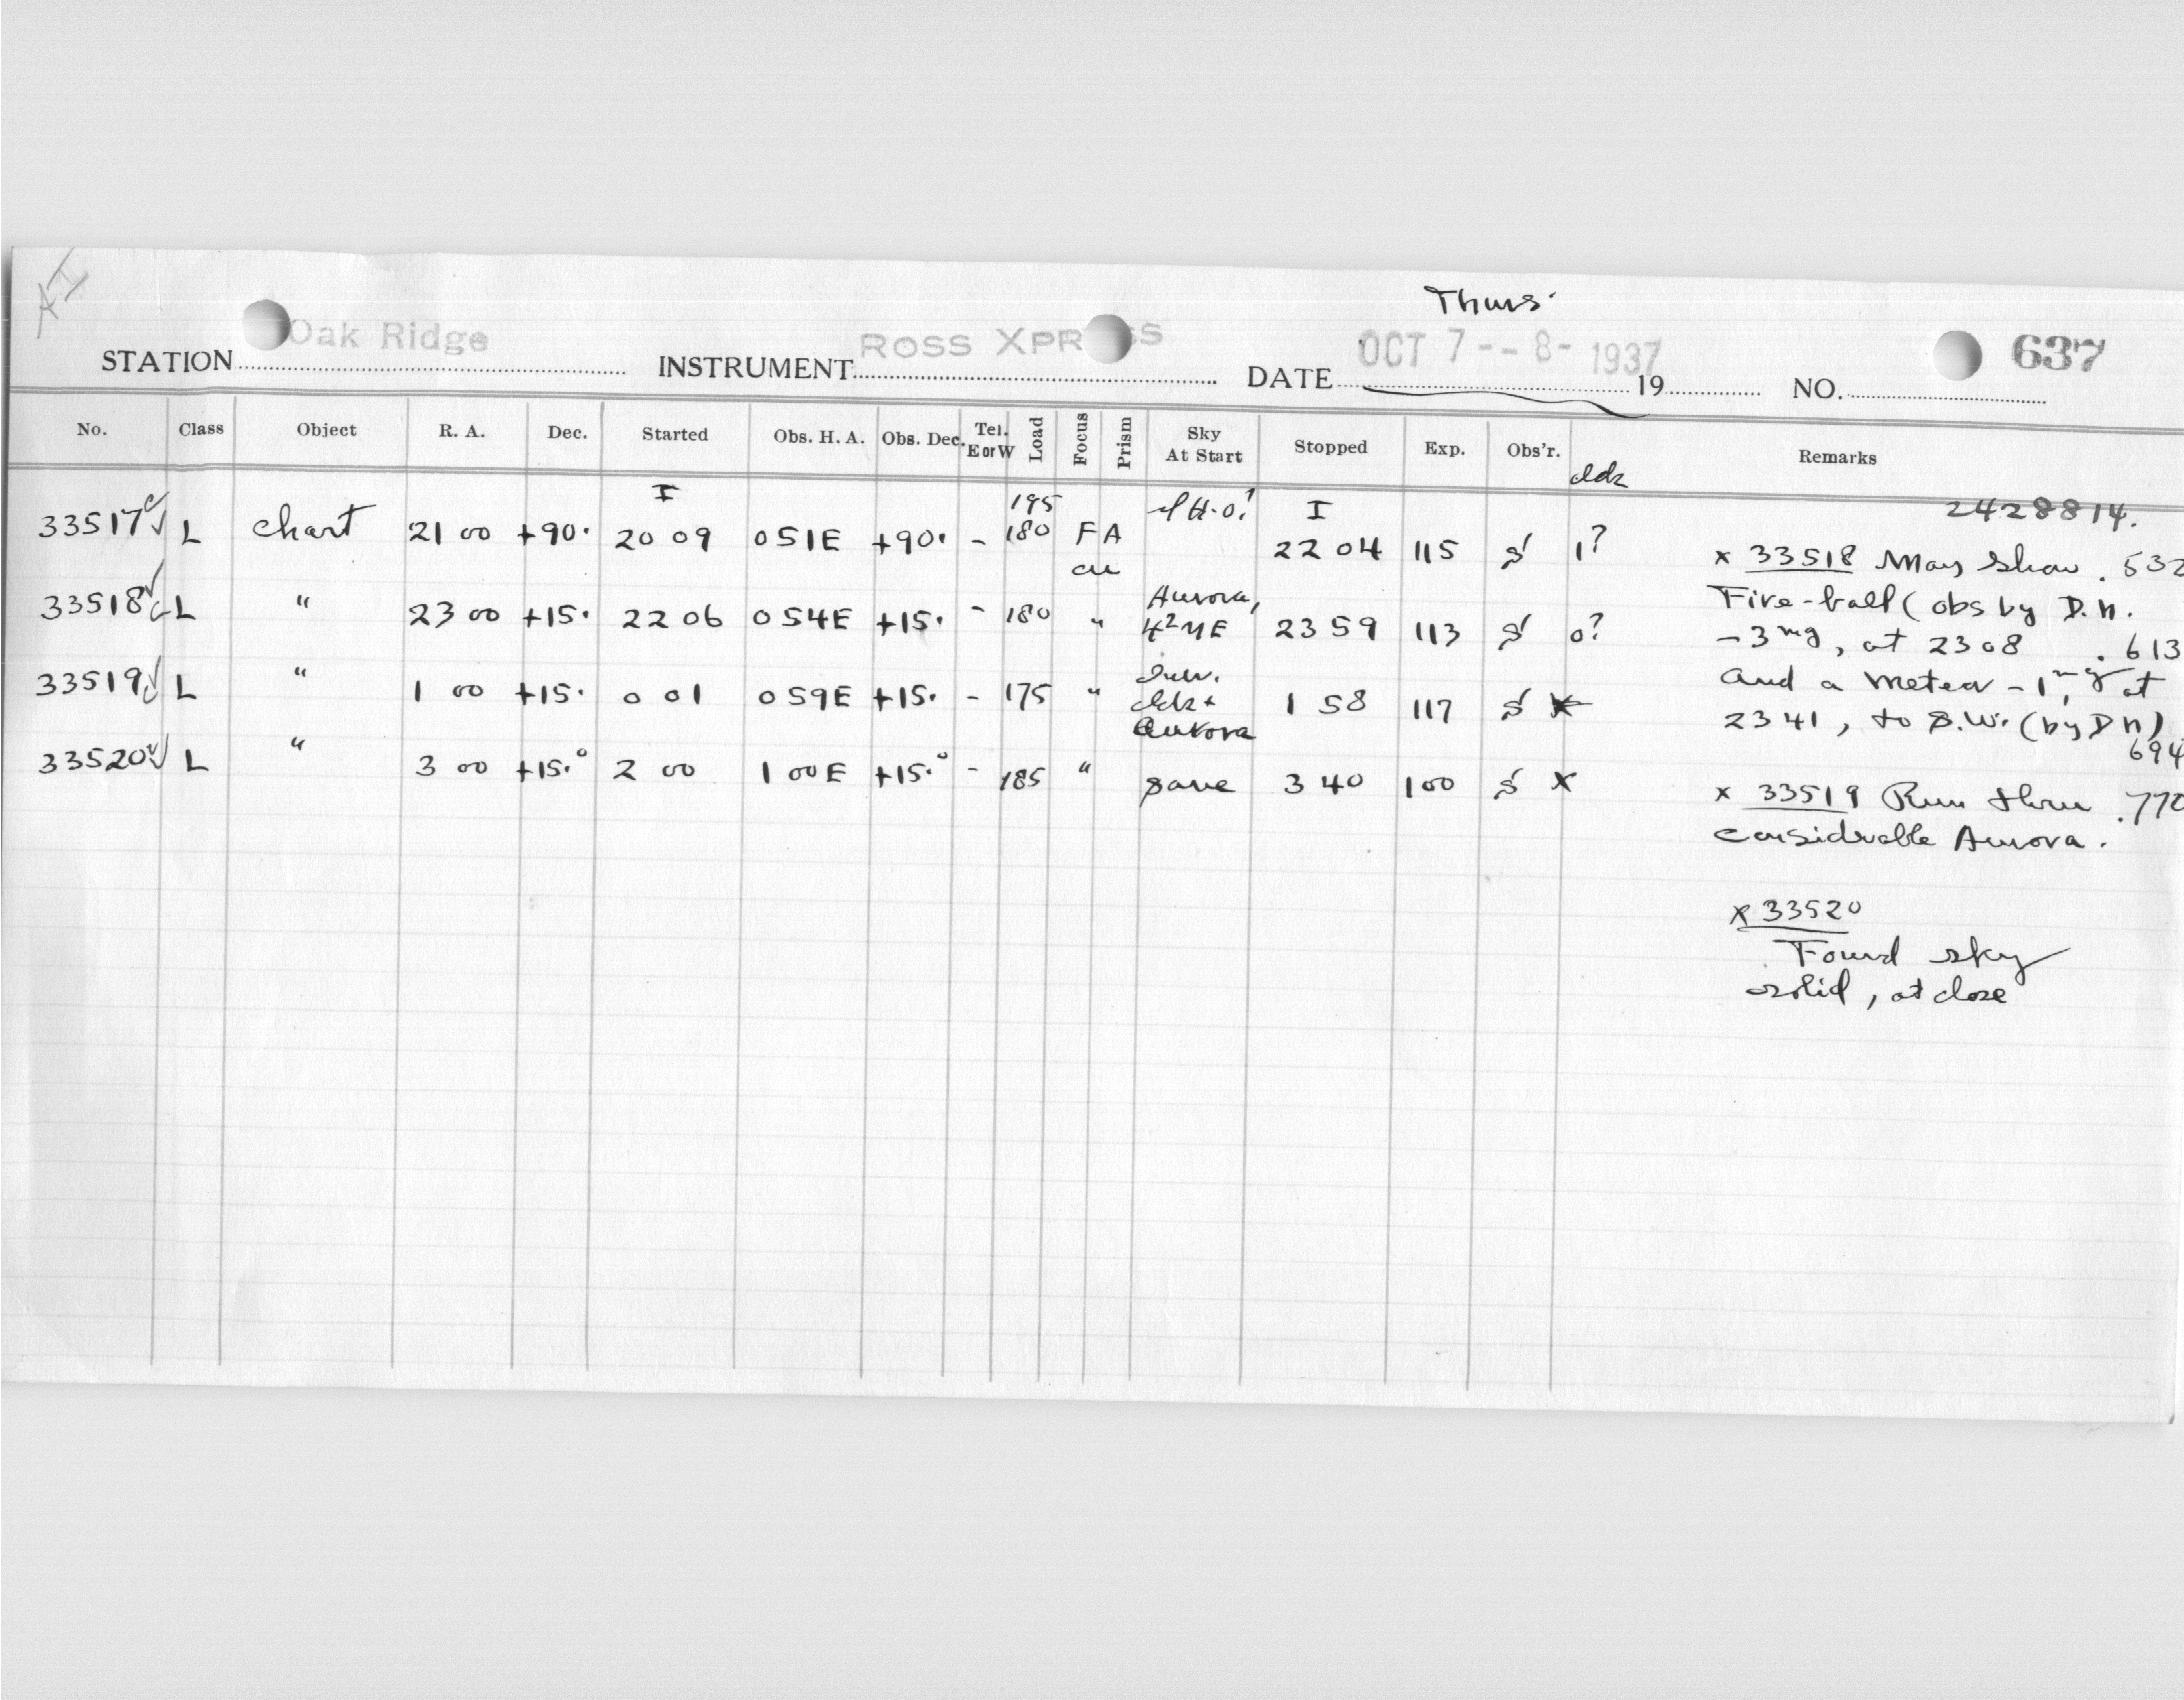 AI
Thurs.
STATION Oak Ridge INSTRUMENT ROSS XPR SS DATE OCT 7 - - 8 - 1937 19 NO. 637
No. Class Object R. A. Dec. Started Obs. H. A. Obs. Dec. Tel. E or W Load Focus Prism Sky At Start Stopped Exp. Obs'r. cldz Remarks
I 195 I 2428814.
33517 L chart 21 00 +90° 20 09 0 51E +90° - 180 FA 22 04 115 S 1?
cu
33518 L " 23 00 +15° 22 06 0 54E +15° - 180 " Aurora, 23 59 113 S 0?
33519 L " 1 00 +15° 0 01 0 59E +15° - 175 " cldz + Aurora 1 58 117 S x
33520 L " 3 00 +15° 2 00 1 00E +15° - 185 " same 3 40 100 S x
x 33518 May show . 532
Fire-ball (obs by D.H.
-3 mg, at 2308 . 613
and a meteor -1 mg, at
2341, to S.W. (by DH)
694
x 33519 Run thru .770
considerable Aurora.
x 33520
Found sky
solid, at close